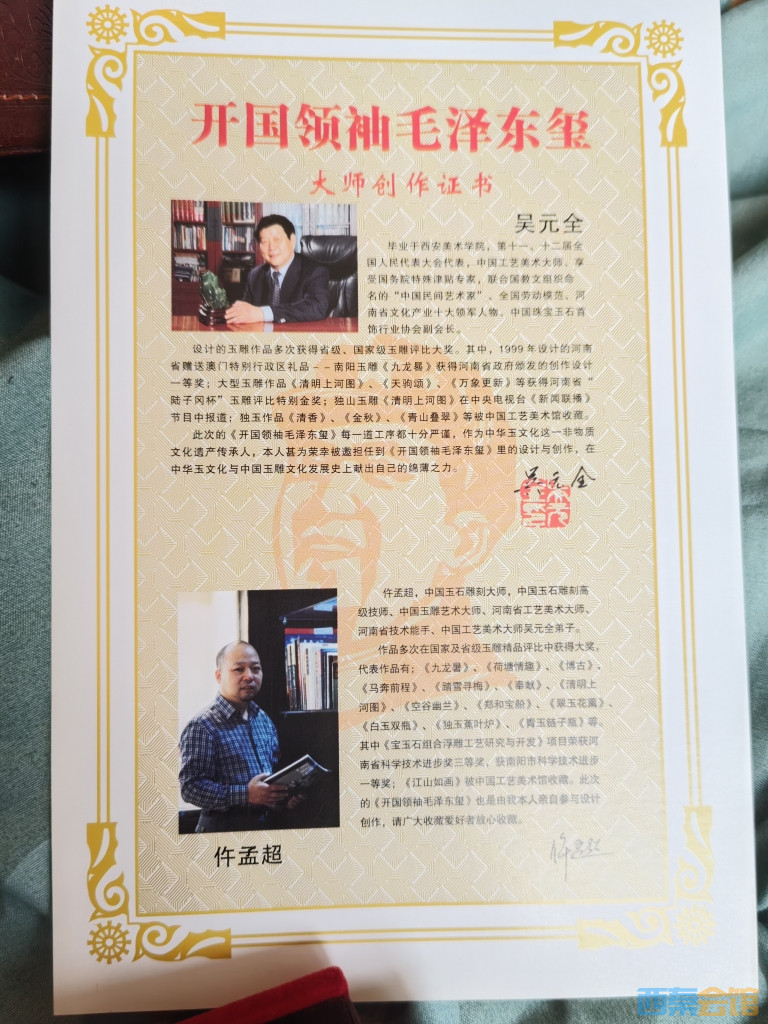 开国领袖毛泽东玺
大师创作证书
吴元全
毕业于西安美术学院，第十一、十二届全
国人民代表大会代表，中国工艺美术大师。享
受国务院特殊津贴专家，联合国教文组织命
名的“中国民间艺术家”、全国劳动模范、河
南省文化产业十大领军人物。中国珠宝玉石首
饰行业协会副会长。
设计的玉雕作品多次获得省级、国家级玉雕评比大奖。其中，1999年设计的河南
省赠送澳门特别行政区礼品--南阳玉雕《九龙晷》获得河南省政府颁发的创作设计
一等奖；大型玉雕作品《清明上河图》、《天驹颂》、《万象更新》等获得河南省“
陆子冈杯”玉雕评比特别金奖；独山玉雕《清明上河图》在中央电视台《新闻联播》
节目中报道；独玉作品《清香》、《金秋》、《青山叠翠》等被中国工艺美术馆收藏。
此次的《开国领袖毛泽东玺》每一道工序都十分严谨，作为中华玉文化这一非物质
文化遗产传承人，本人甚为荣幸被邀担任到《开国领袖毛泽东玺》里的设计与创作，在
中华玉文化与中国玉雕文化发展史上献出自己的绵薄之力。
吴元全
仵孟超，中国玉石雕刻大师，中国玉石雕刻高
级技师、中国玉雕艺术大师、河南省工艺美术大师、
河南省技术能手、中国工艺美术大师吴元全弟子。
作品多次在国家及省级玉雕精品评比中获得大奖，
代表作品有；《九龙晷》、《荷塘情趣》、《博古》、
《马奔前程》、《踏雪寻梅》、《奉献》、《清明上
河图》、《空谷幽兰》、《郑和宝船》、《翠玉花薰》、
《白玉双瓶》、《独玉蕉叶炉》、《青玉链子瓶》等。
其中《宝玉石组合浮雕工艺研究与开发》项目荣获河
南省科学技术进步奖三等奖，获南阳市科学技术进步
一等奖；《江山如画》被中国工艺美术馆收藏。此次
的《开国领袖毛泽东玺》也是由我本人亲自参与设计
创作，请广大收藏爱好者放心收藏。
仵孟超
仵孟超
西秦会馆